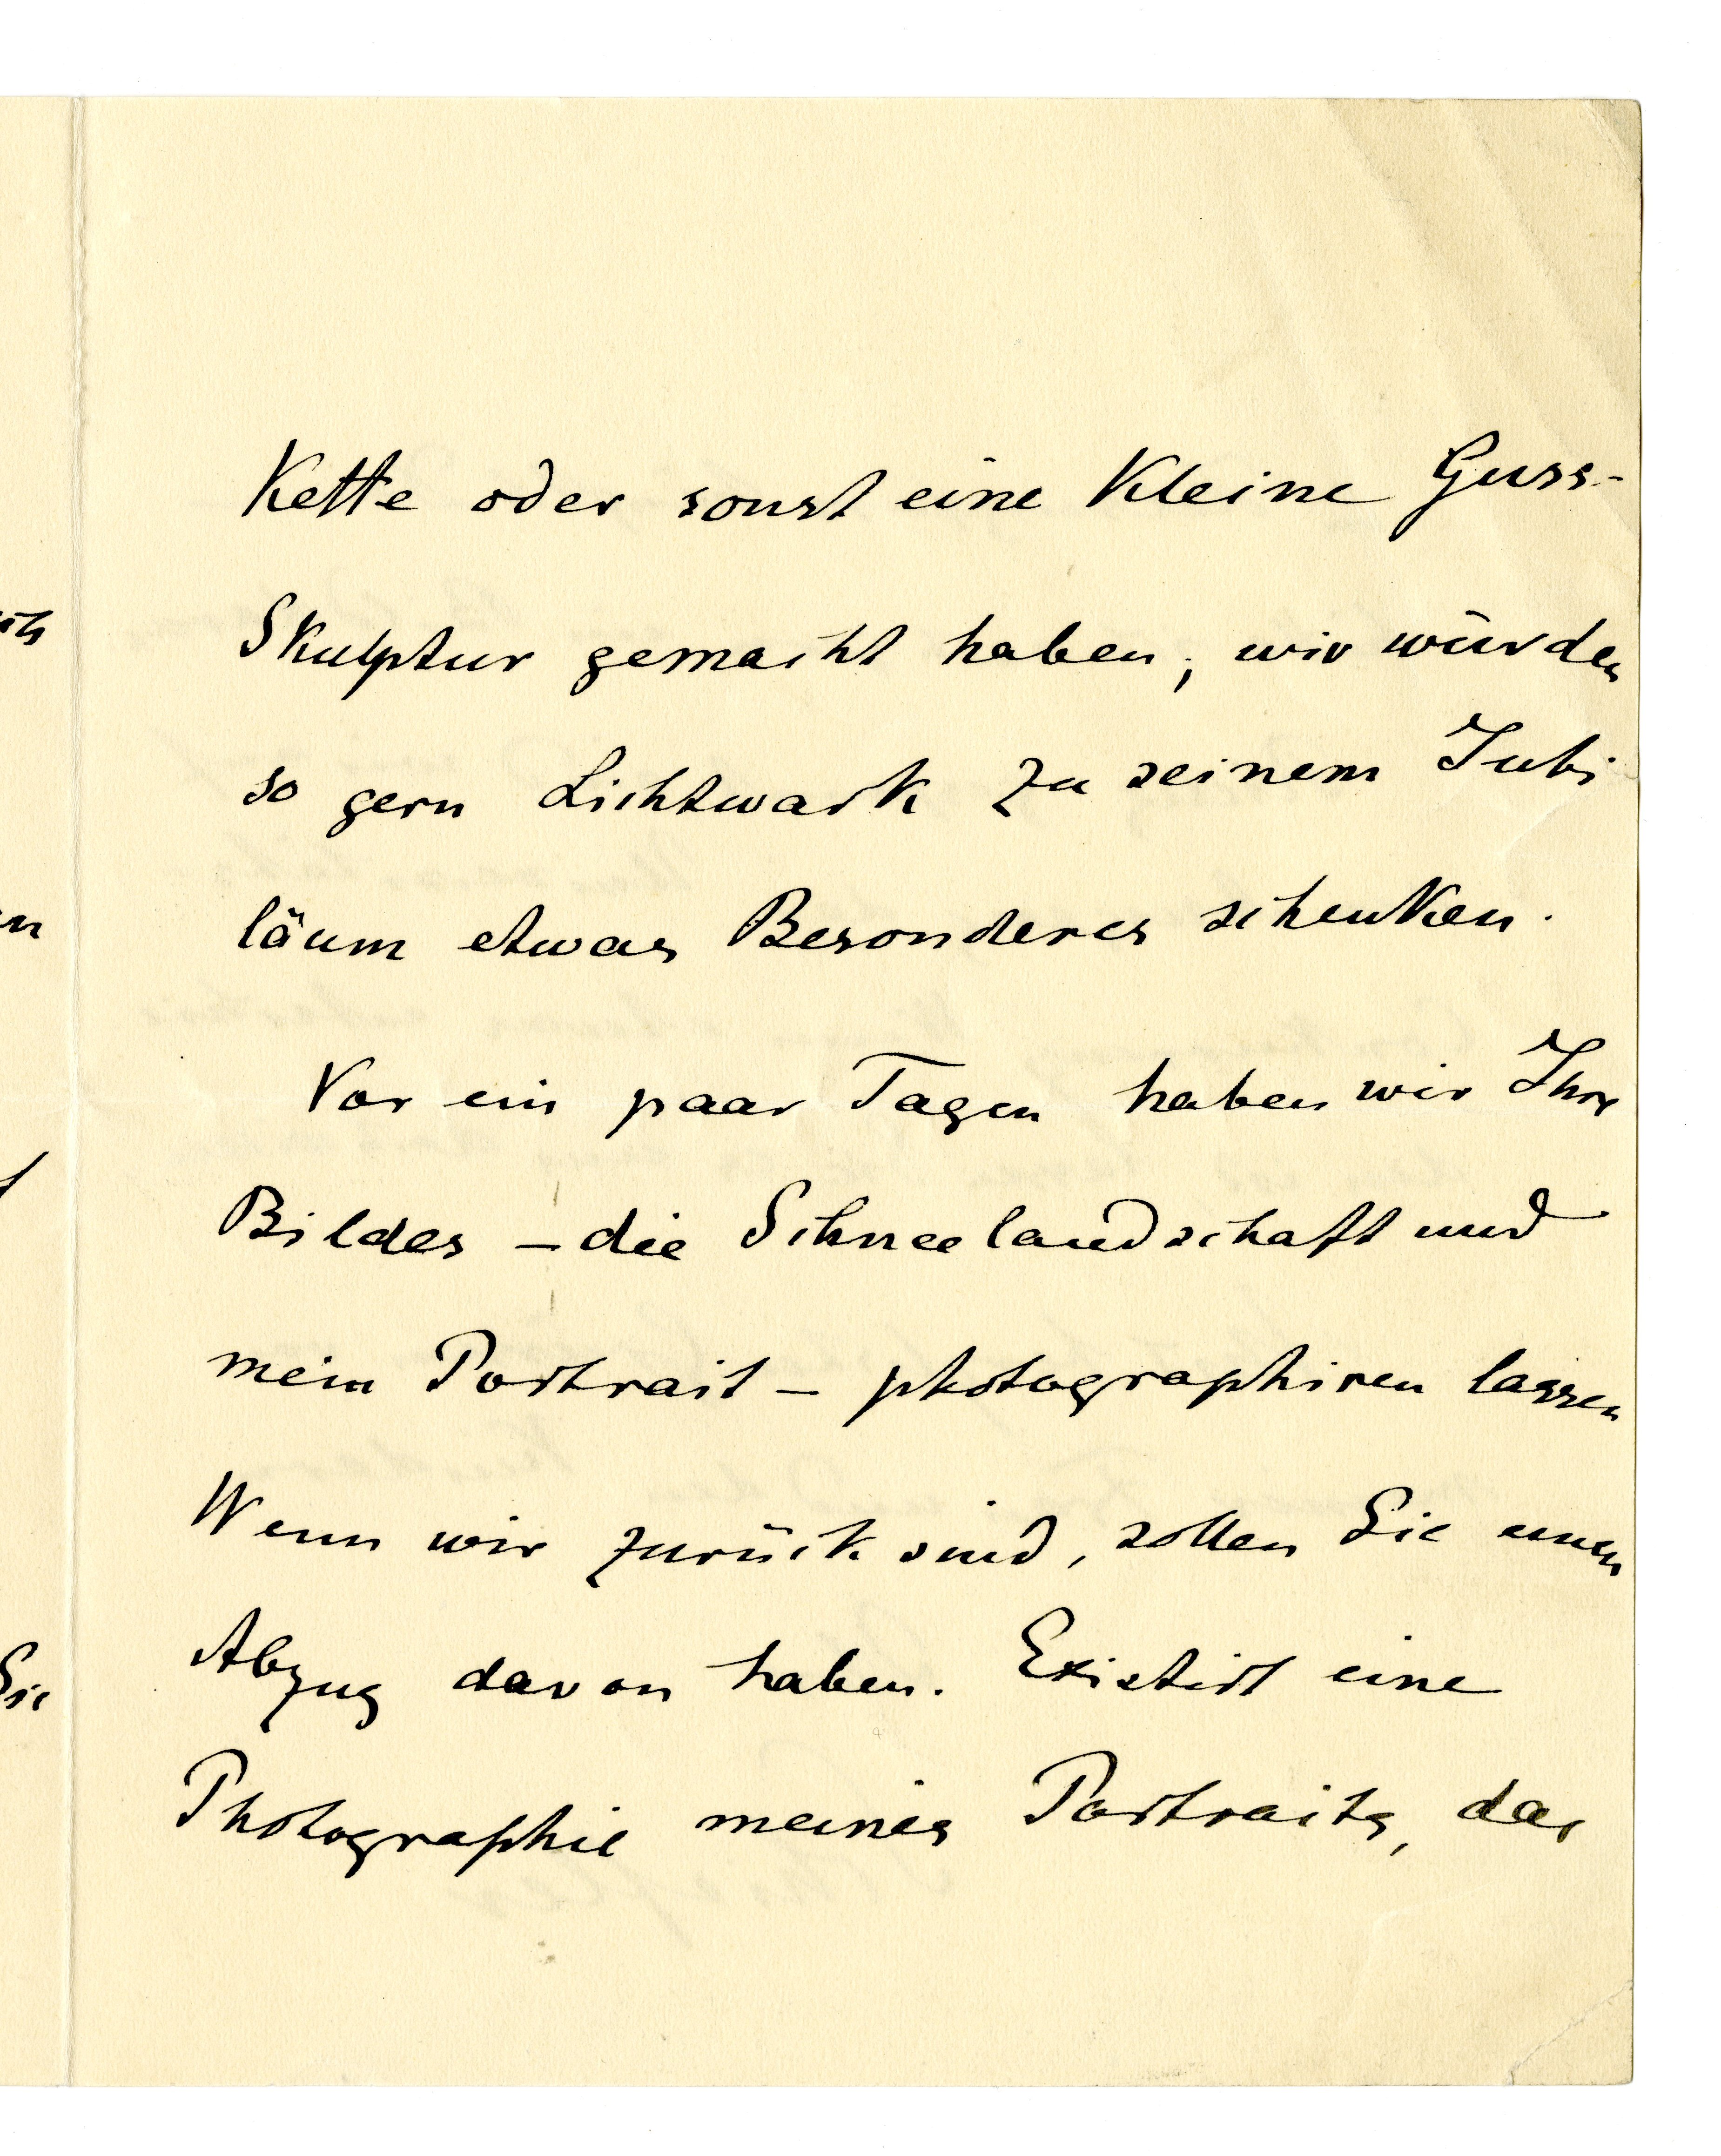 Kette oder sonst eine Kleine Guss-
Skulptur gemacht haben; wir würden
so gern Lichtwark zu seinem Jubi
läum etwas Besonderes schenken.
Vor ein paar Tagen haben wir Ihre
Bilder – die Schneelandschaft und
mein Portrait – photographiren lassen
Wenn wir zurück sind, sollen Sie einen
Abzug davon haben. Existirt eine
Photographie meines Portraits, das
Sie